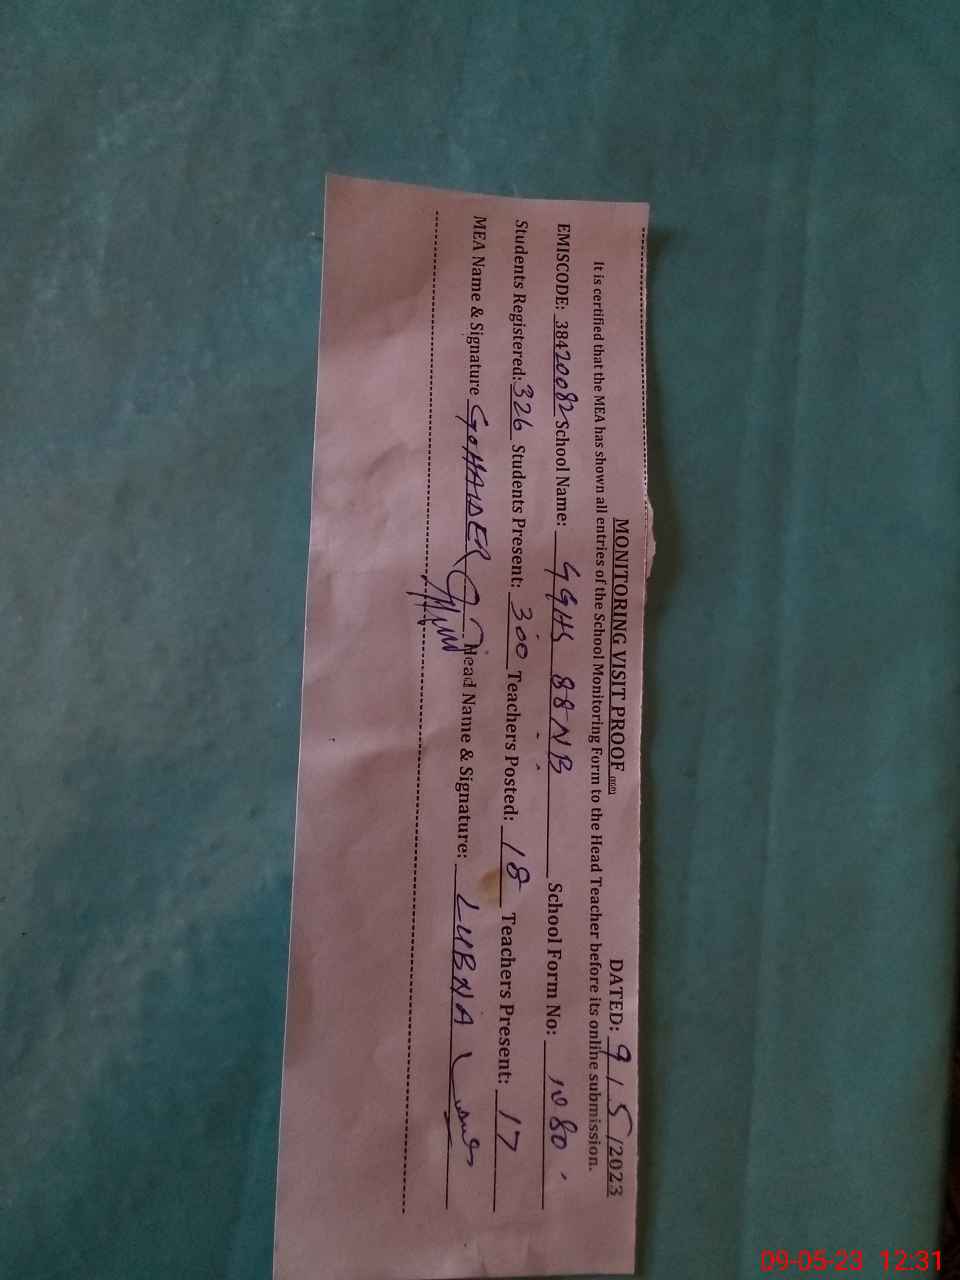 MONITORING VISIT PROOF DATED: 9/5/2023
It is certified that the MEA has shown all entries of the School Monitoring Form to the Head Teacher before its online submission.
EMISCODE: 38420082 School Name: GGHS 88-NB School Form No: 1080
Students Registered: 326 Students Present: 300 Teachers Posted: 18 Teachers Present: 17
MEA Name & Signature G.HAIDER Head Name & Signature: LUBNA
09-05-23 12:31